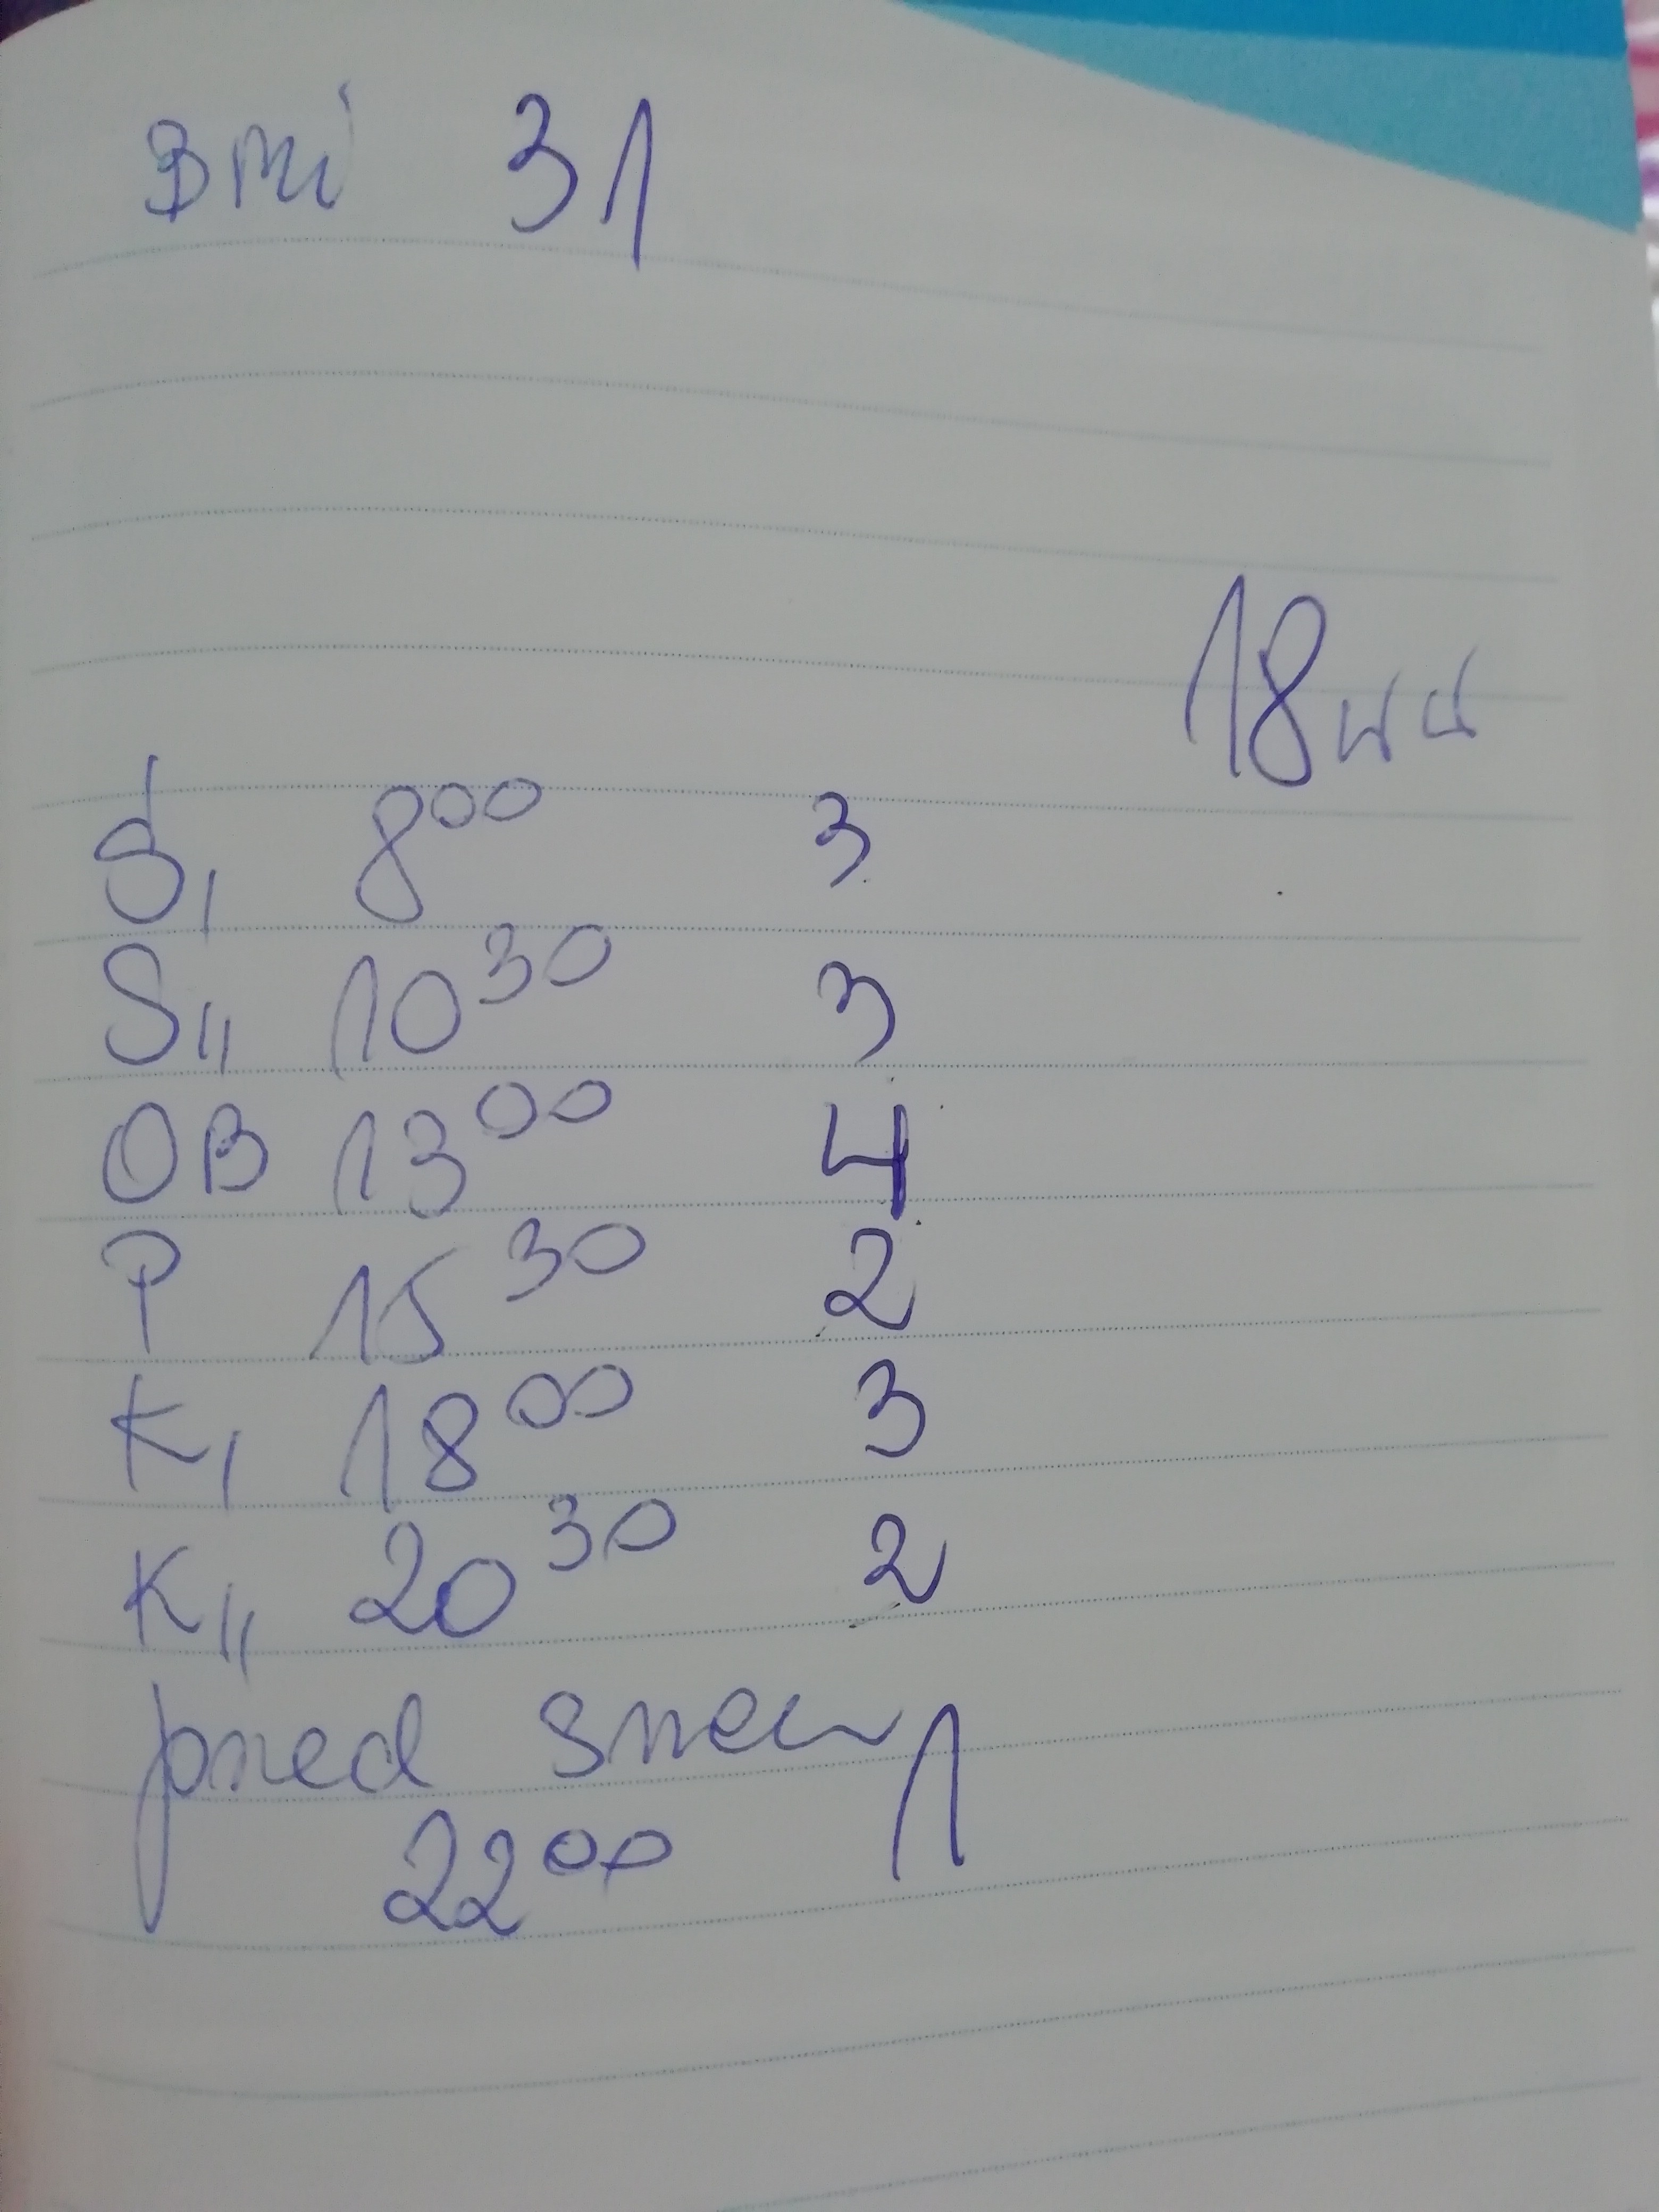 BMI 31
18 ww
Ś I 8⁰⁰ 3
S II 10³⁰ 3
OB 13⁰⁰ 4
P 15³⁰ 2
K I 18⁰⁰ 3
K II 20³⁰ 2
przed snem 1
22⁰⁰